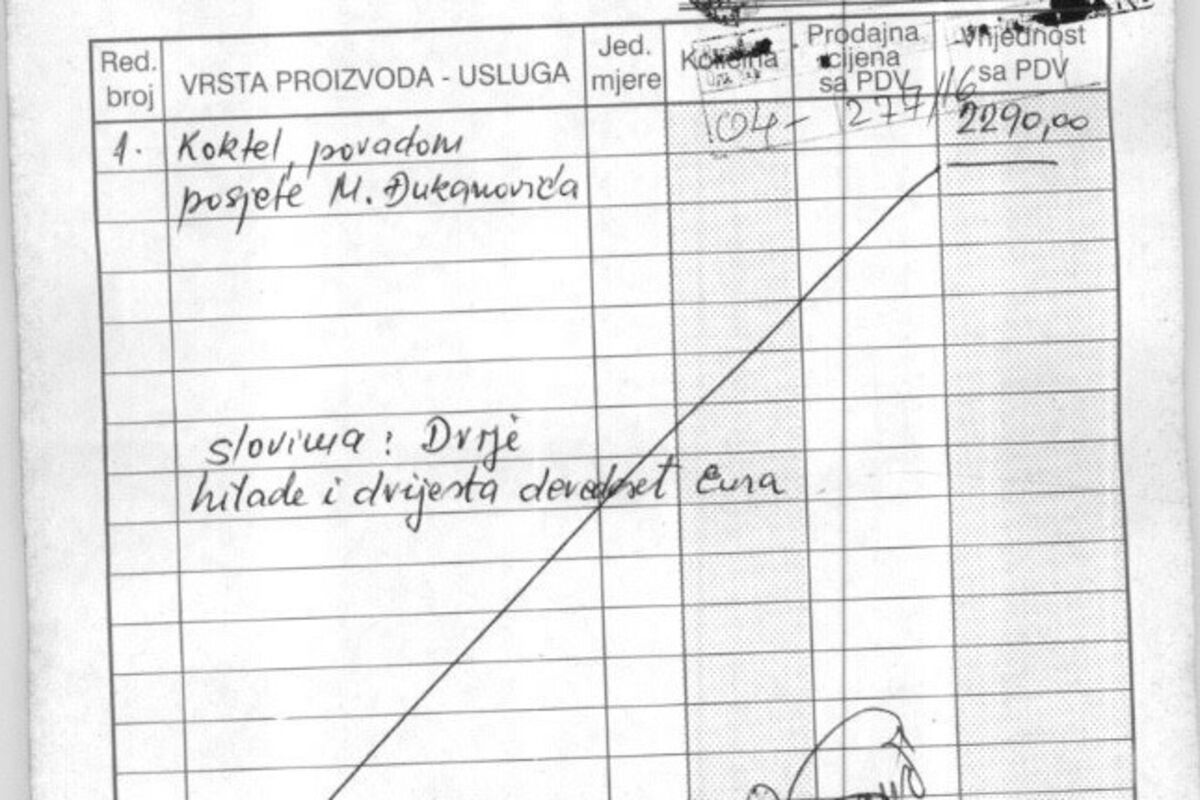 Red. broj
VRSTA PROIZVODA - USLUGA
Jed. mjere
Količina
Prodajna cijena sa PDV
Vrijednost sa PDV
04- 277/16
1. Koktel, povodom 2290,00
posjete M. Đukanovića
slovima: Dvije
hiljade i dvijesta devedeset eura